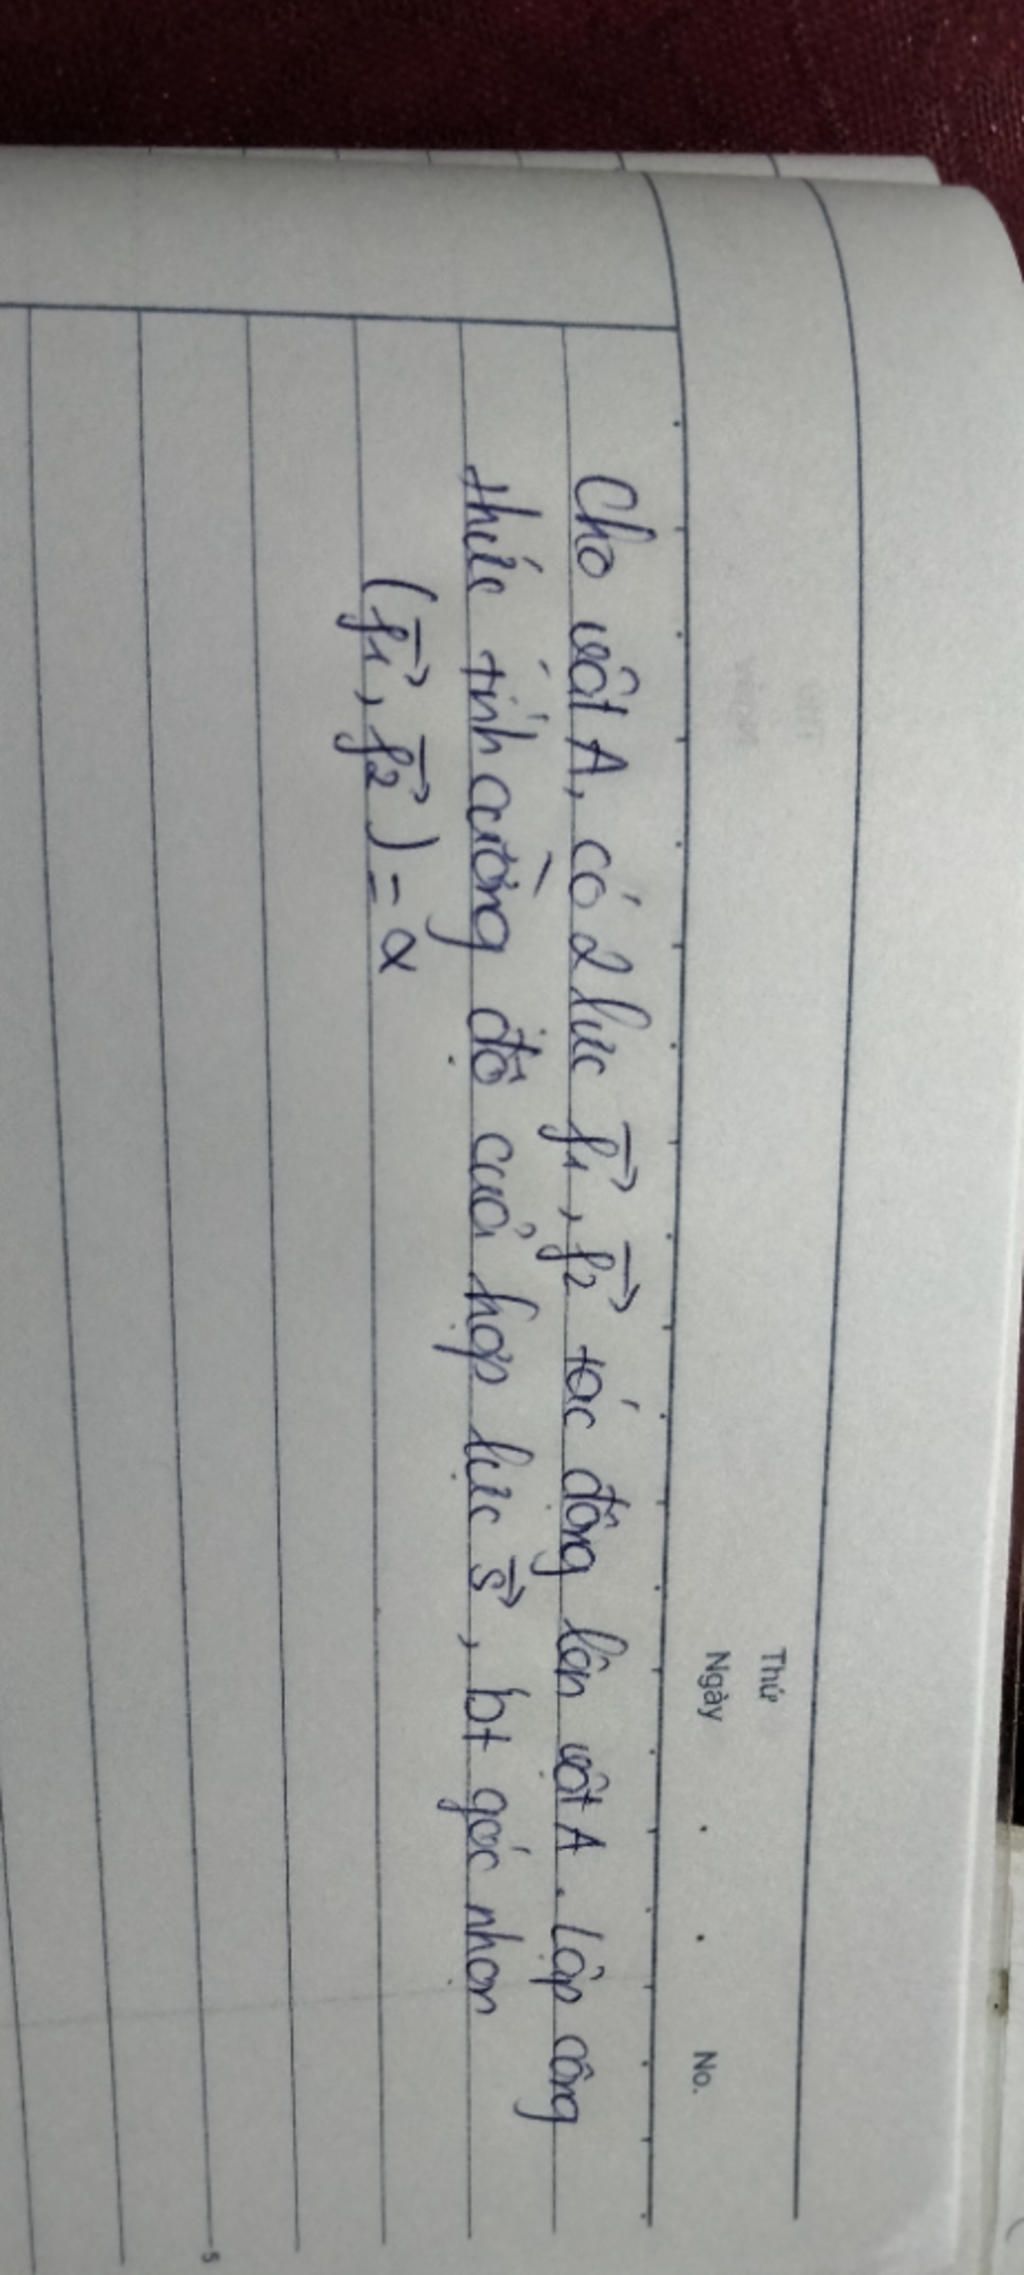 Thứ
Ngày No.
Cho vật A, có 2 lực f₁, f₂ tác động lên vật A. Lập công
thức tính cường độ của hợp lực s, bt góc nhọn
(f₁, f₂) = α
5